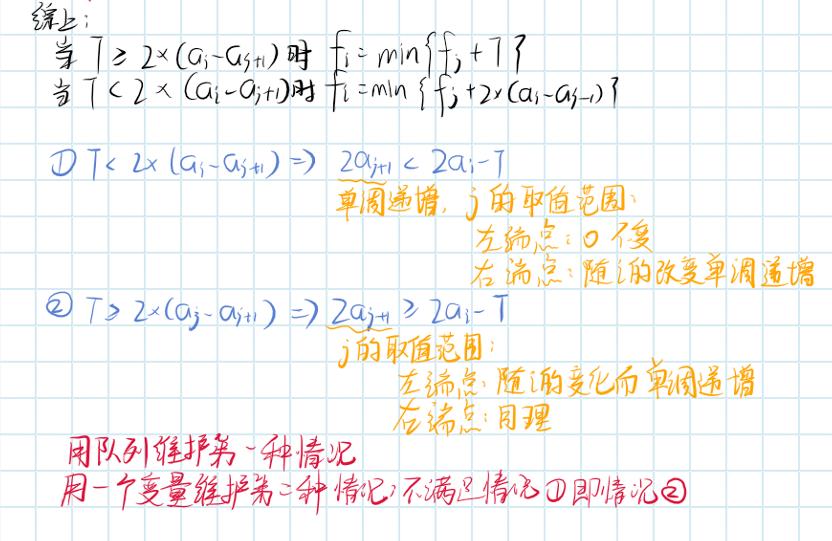 综上：
当 T ≥ 2×(aᵢ-aⱼ₊₁)时 fᵢ = min{fⱼ+T}
当 T < 2×(aᵢ-aⱼ₊₁)时 fᵢ = min{fⱼ+2×(aᵢ-aⱼ₋₁)}
① T < 2×(aᵢ-aⱼ₊₁) => 2aⱼ₊₁ < 2aᵢ-T
单调递增, j的取值范围：
左端点：0 不变
右端点：随i的改变单调递增
② T ≥ 2×(aⱼ-aⱼ₊₁) => 2aⱼ₊₁ ≥ 2aᵢ-T
j的取值范围：
左端点：随i的变化而单调递增
右端点：同理
用队列维护第一种情况
用一个变量维护第二种情况,不满足情况①即情况②